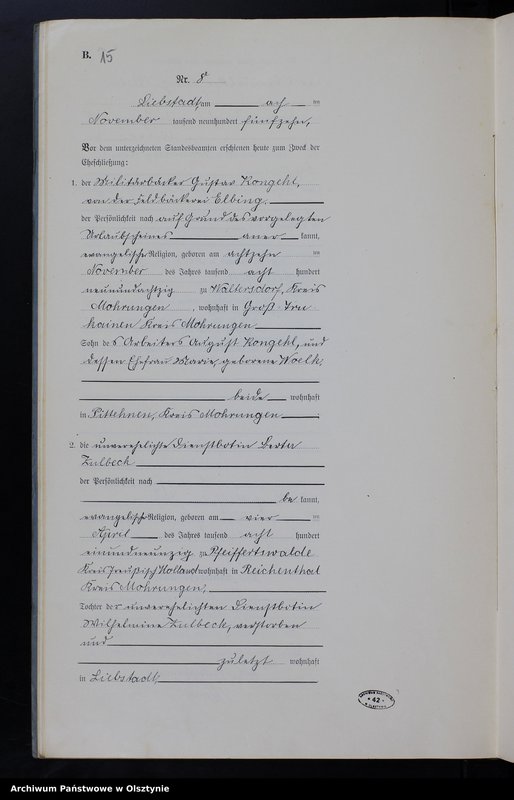 B. 15
Nr. 8
Liebstadt, am ach ten
November tausend neunhundert fünfzehn,
Vor dem unterzeichneten Standesbeamten erschienen heute zum Zweck der
Eheschließung:
1. der Militärbäcker Gustav Kongehl,
von der Feldbäckerei Elbing,
der Persönlichkeit nach auf Grund des vorgelegten
Urlaubscheines aner kannt,
evangelischer Religion, geboren am achtzehn ten
November des Jahres tausend acht hundert
neunundachtzig zu Waltersdorf, Kreis
Mohrungen, wohnhaft in Groß
Kreis Mohrungen
Sohn des Arbeiters August Kongehl, und
dessen Ehefrau Marie, geborene Woelk,
beide wohnhaft
in Pittehnen, Kreis Mohrungen
2. die unverehelichte Dienstbotin Berta
Zulbeck
der Persönlichkeit nach
be kannt,
evangelischer Religion, geboren am vier ten
April des Jahres tausend acht hundert
einundneunzig zu Pfeiffertswalde
Kreis Preußisch Holland wohnhaft in Reichenthal
Kreis Mohrungen,
Tochter der unverehelichten Dienstbotin
Wilhelmine Zulbeck, verstorben
und
zuletzt wohnhaft
in Liebstadt,
42
Archiwum Państwowe w Olsztynie